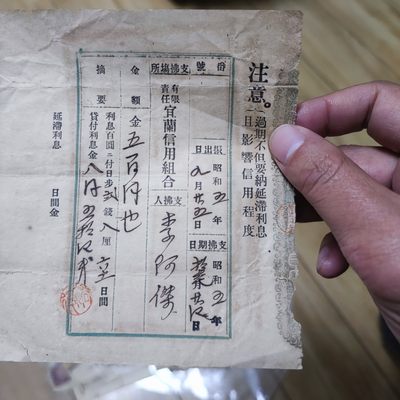 注意。
過期不但要納延滯利息
且影響信用程度
番號
振出日
昭和五年
九月廿五日
支拂期日
昭和五年
支拂場所
有限
責任
宜蘭信用組合
支拂人
李阿傑
金額
金五百円也
摘要
利息百圓ニ付日步貳錢八厘
貸付利息金八円五拾
日間
延滯利息 日間金